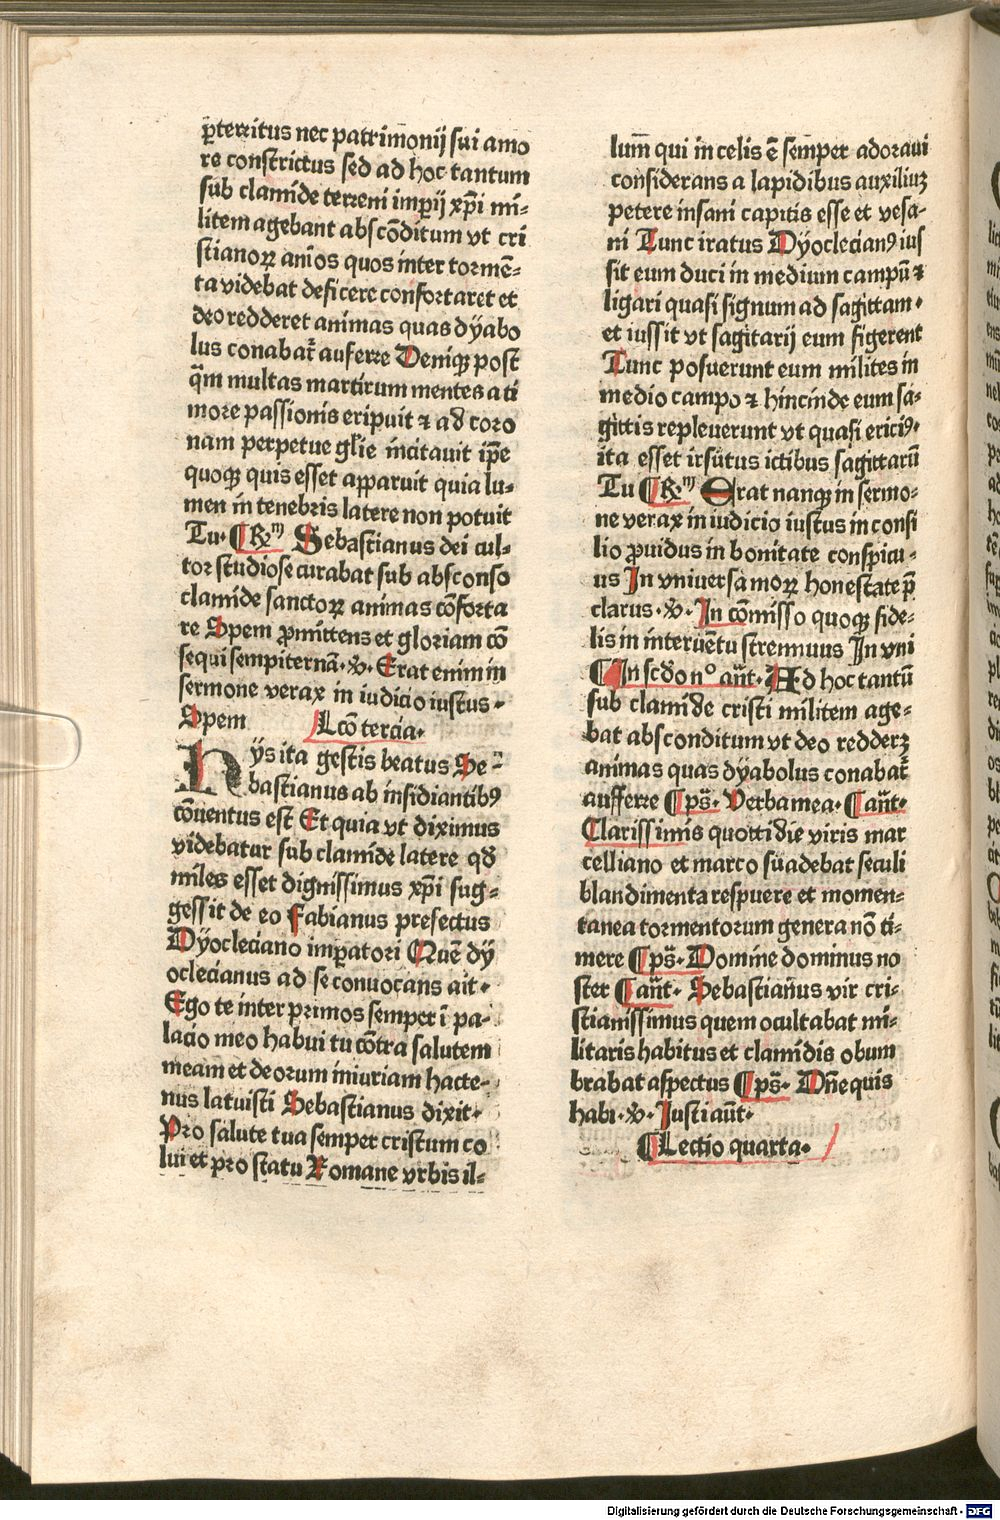 ꝑterritus nec patrimonij sui amo
re constrictus sed ad hoc tantum
sub clamide terreni imꝑij xp̄i mi⸗
litem agebant absco̅ditum vt cri
stianoꝝ ani̅os quos inter torme̅⸗
ta videbat deficere confortaret et
deo redderet animas quas dÿabo
lus conabat᷑ auferre Deniqꝫ post
q̄m multas martirum mentes a ti
more passionis eripuit ⁊ ad coro
nam perpetue gl̄ie incitauit ip̄e
quoqꝫ quis esset apparuit quia lu⸗
men in tenebris latere non potuit
Tu· ¶ R̸ᵐ Sebastianus dei cul⸗
tor studiose curabat sub absconso
clamide sanctoꝝ animas co̅forta
re Spem ꝓmittens et gloriam co̅
sequi sempiterna̅· ℣· Erat enim in
sermone verax in iudicio iustus·
Spem Lco̅ tercia·
Hÿs ita gestis beatus Se⸗
bastianus ab insidiantibꝰ
co̅uentus est Et quia vt diximus
videbatur sub clamide latere qd̄
miles esset dignissimus xp̄i sug⸗
gessit de eo Fabianus prefectus
Dÿocleciano imꝑatori Que̅ dÿ
oclecianus ad se conuocans ait·
Ego te inter primos semper i̅ pa⸗
lacio meo habui tu co̅tra salutem
meam et deorum iniuriam hacte⸗
nus latuisti Sebastianus dixit·
Pro salute tua semper cristum co
lui et pro statu Romane vrbis il⸗
lum̅ qui in celis e̅ semper adoraui
considerans a lapidibus auxiliuꝫ
petere insani capitis esse et vesa⸗
ni Tunc iratus Dÿoclecianꝰ ius
sit eum duci in medium campu̅ ⁊
ligari quasi signum ad sagittam·
et iussit vt sagitarij eum figerent
Tunc posuerunt eum milites in
medio campo ⁊ hincinde eum sa⸗
gittis repleuerunt vt quasi ericiꝰ·
ita esset irsutus ictibus sagittaru̅
Tu ¶ R̸ᵐ Erat nanqꝫ in sermo⸗
ne verax in iudicio iustus in consi
lio ꝓuidus in bonitate conspicu⸗
us In vniuersa moꝝ honestate p̄
clarus· ℣· In co̅misso quoqꝫ fide⸗
lis in interue̅tu strennuus In vni
¶ In scd̄o n° an̄t· Ad hoc tantu̅
sub clamide cristi militem age⸗
bat absconditum vt deo redderꝫ
animas quas dÿabolus conabat᷑
aufferre ¶ ps̄· Verba mea· ¶ an̄t·
Clarissimis quottidie viris mar
celliano et marco suadebat seculi
blandimenta respuere et momen⸗
tanea tormentorum genera no̅ ti⸗
mere ¶ ps̄· Domine dominus no
ster ¶ an̄t· Sebastianus vir cri⸗
stianissimus quem ocultabat mi⸗
litaris habitus et clamidis obum
brabat aspectus ¶ ps̄· Dn̄e quis
habi· ℣· Justi au̅t·
¶ Lectio quarta·
Digitalisierung gefördert durch die Deutsche Forschungsgemeinschaft - DFG